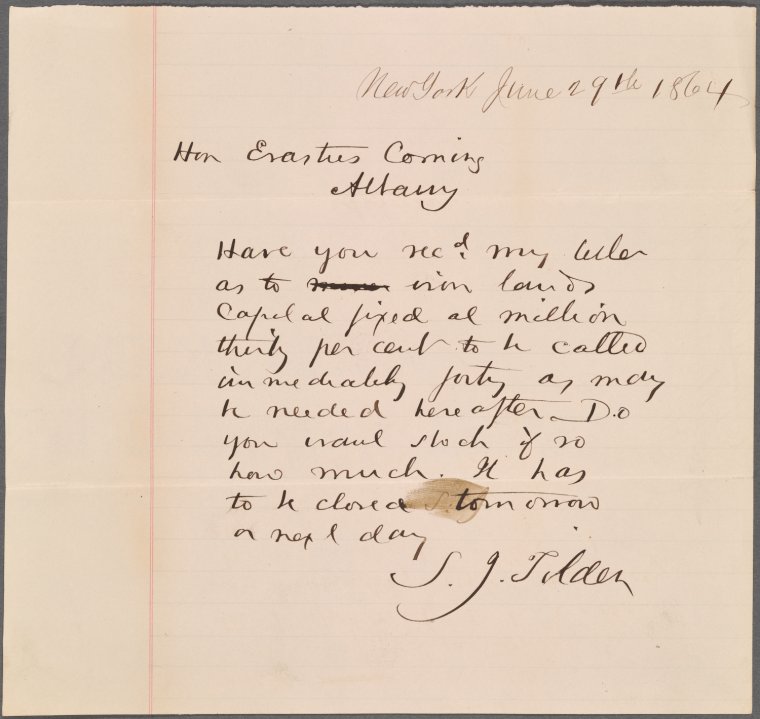 New York June 29th 1864
Hon Erastus Corning
Albany
Have you recd. my letter
as to iron lands
Capital fixed at million
thirty per cent to be called
immediately forty as may
be needed hereafter. Do
you want stock if so
how much. It has
to be closed tomorrow
or next day
S. J. Tilden